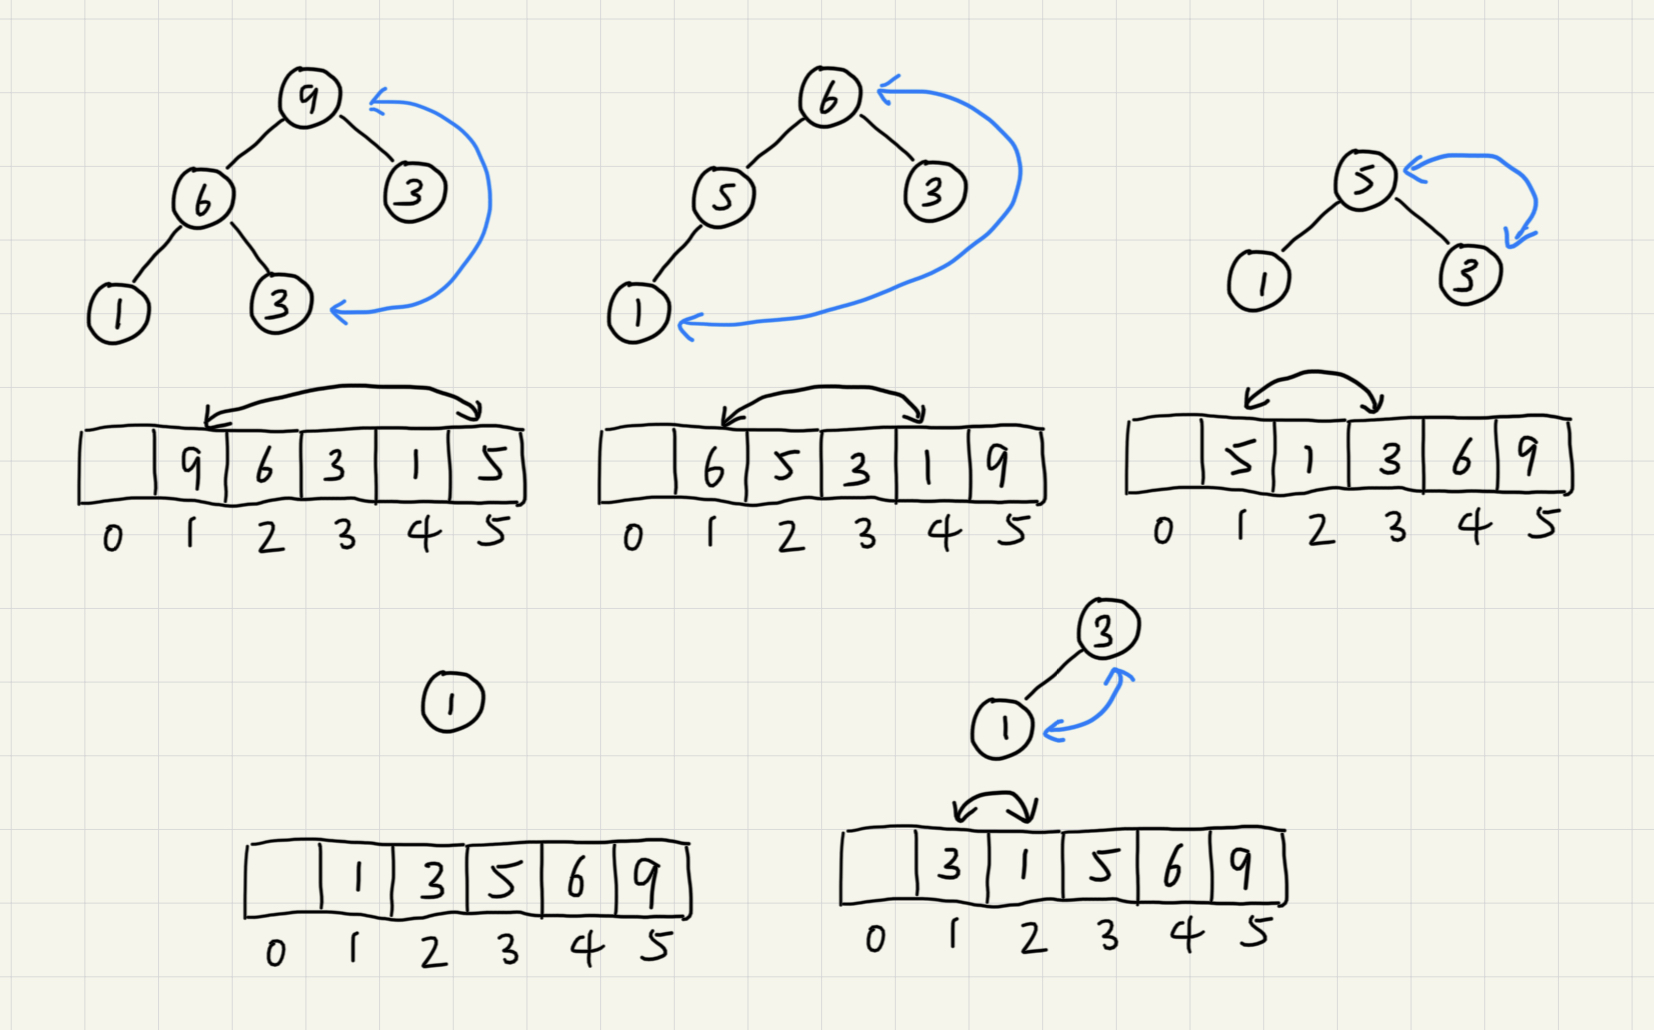 9
6 3
1 3
9 6 3 1 5
0 1 2 3 4 5
6
5 3
1
6 5 3 1 9
0 1 2 3 4 5
5
1 3
5 1 3 6 9
0 1 2 3 4 5
1
1 3 5 6 9
0 1 2 3 4 5
3
1
3 1 5 6 9
0 1 2 3 4 5